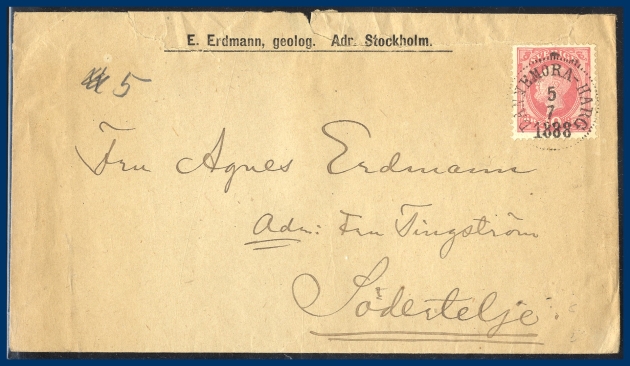 E. Erdmann, geolog. Adr. Stockholm.
5
DANNEMORA-HARG
5
7
1888
Fru Agnes Erdmann
Adr: Fru Tingström
Södertelje